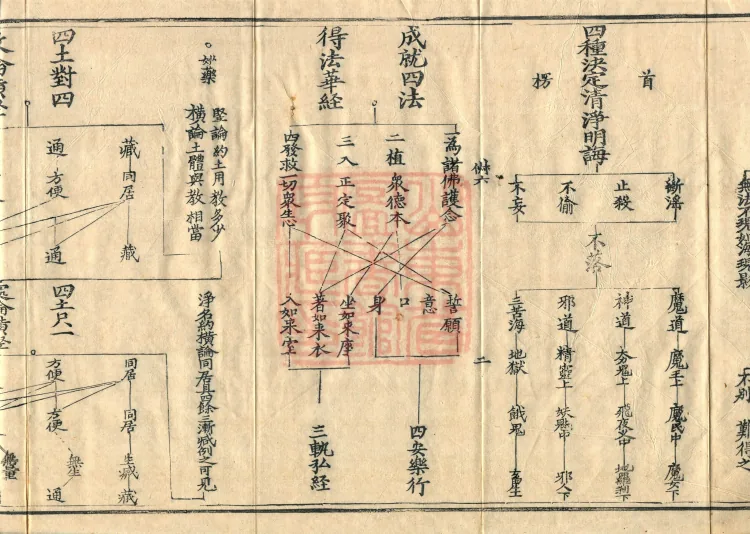 首
楞
四種決定清淨明誨
斷滛
止殺
不偷
不妄
不落
魔道
魔王上
魔民中
魔女下
神道
飛夜叉中
地羅刹下
邪道
精靈上
妖魅中
邪人下
三苦海
地獄
餓鬼
畜生
二
成就四法
得法華経
一為諸佛護念
二植衆德本
三入正定聚
四發救一切衆生
誓願
意
口
身
坐如来座
著如来衣
入如来室
四安樂行
三軌弘经
妙藥
竪論約土用教多少
橫論土體與教相當
淨名約橫論同居具四餘三漸減例之可見
四土對四
藏
同居
藏
通
方便
通
四土尺一
同居
同居
藏
方便
方便
通
難得之